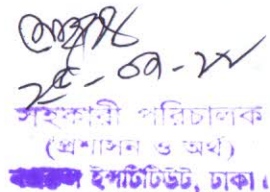 ২৫-০৯-২২
সহকারী পরিচালক
(প্রশাসন ও অর্থ)
ইন্সটিটিউট, ঢাকা।